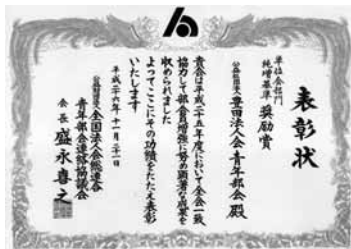 表彰状
単位会部門
純増基準 奨励賞
公益社団法人 豊田法人会 青年部会 殿
貴会は平成二十五年度において全会一致
協力して部会員増強に努め顕著な成果を
収められました
よってここにその功績をたたえ表彰
いたします
平成二十六年十一月二十一日
公益財団法人 全国法人会総連合
青年部会連絡協議会
会長 盛永喜之